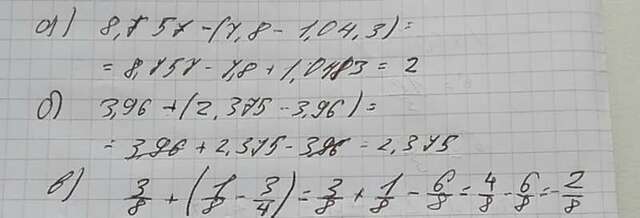 а) 8,757-(7,8-1,04,3)=
= 8,757-7,8+1,0483 = 2
б) 3,96+(2,375-3,96)=
= 3,96+2,375-3,96=2,375
в) 3/8 + (1/8 - 3/4) = 3/8 + 1/8 - 6/8 = 4/8 - 6/8 = -2/8